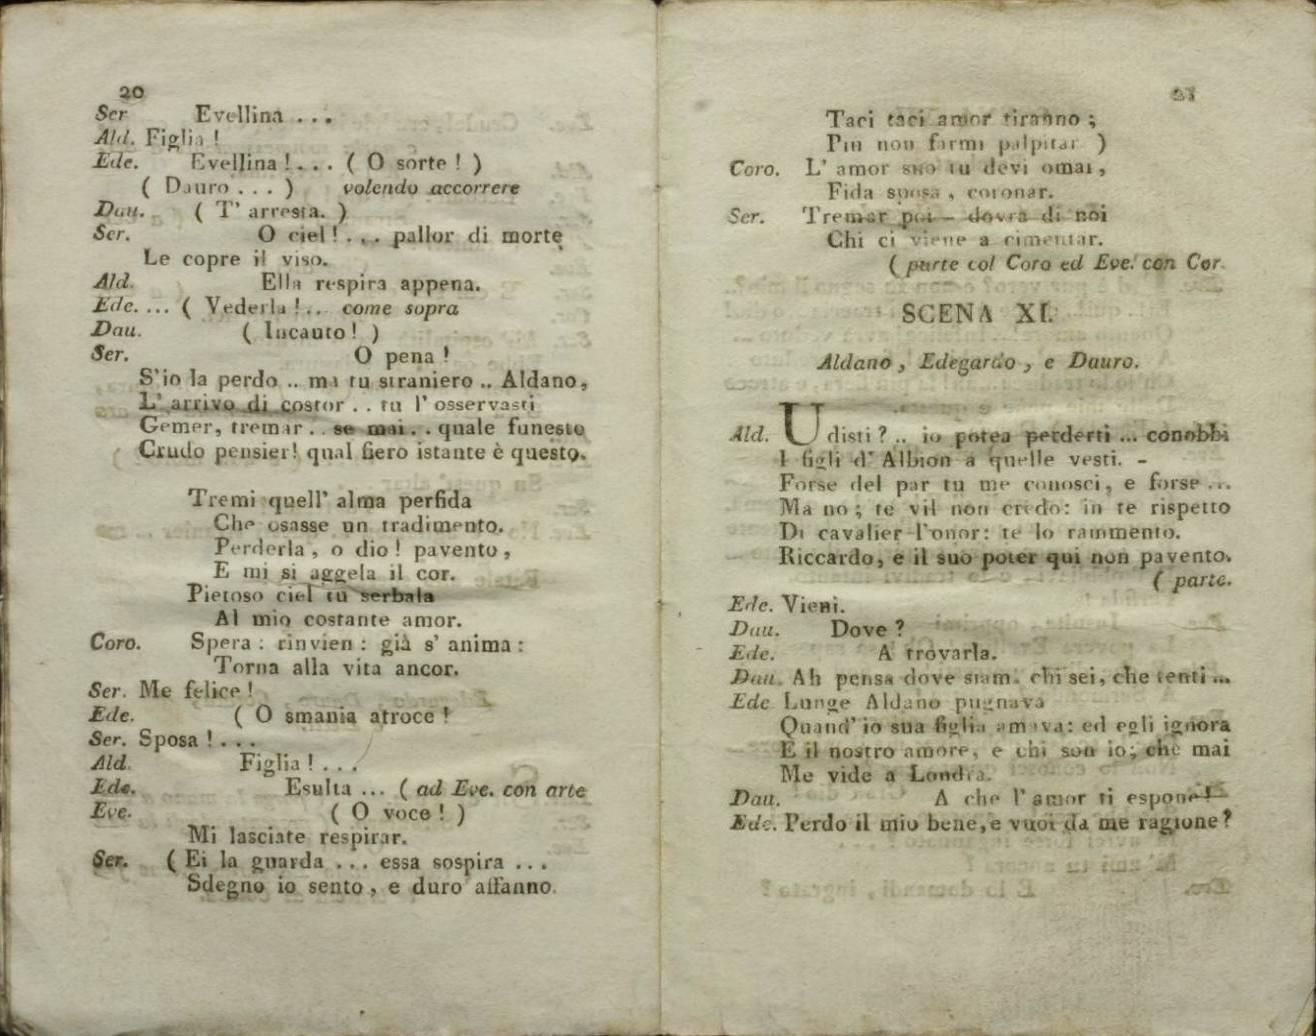 20
Ser Evellina ...
Ald. Figlia !
Ede. Evellina !... ( O sorte ! )
( Dauro ... ) volendo accorrere
Dau. ( T' arresta. )
Ser. O ciel !... pallor di morte
Le copre il viso.
Ald. Ella respira appena.
Ede. ... ( Vederla !.. come sopra
Dau. ( Incauto ! )
Ser. O pena !
S'io la perdo .. ma tu straniero .. Aldano,
L' arrivo di costor .. tu l' osservasti
Gemer, tremar .. se mai .. quale funesto
Crudo pensier! qual fiero istante è questo.
Tremi quell' alma perfida
Che osasse un tradimento.
Perderla, o dio! pavento,
E mi si aggela il cor.
Pietoso ciel tu serbala
Al mio costante amor.
Coro. Spera : rinvien : già s' anima :
Torna alla vita ancor.
Ser. Me felice !
Ede. ( O smania atroce !
Ser. Sposa ! ...
Ald. Figlia ! ...
Ede. Esulta ... ( ad Eve. con arte
Eve. ( O voce ! )
Mi lasciate respirar.
Ser. ( Ei la guarda ... essa sospira ...
Sdegno io sento, e duro affanno.
21
Taci taci amor tiranno ;
Piu non farmi palpitar )
Coro. L' amor suo tu devi omai,
Fida sposa, coronar.
Ser. Tremar poi — dovrà di noi
Chi ci viene a cimentar.
( parte col Coro ed Eve. con Cor.
SCENA XI.
Aldano, Edegardo, e Dauro.
Ald. Udisti ? .. io potea perderti ... conobbi
I figli d' Albion a quelle vesti. -
Forse del par tu me conosci, e forse ...
Ma no ; te vil non credo: in te rispetto
Di cavalier l'onor: te lo rammento.
Riccardo, e il suo poter qui non pavento.
( parte.
Ede. Vieni.
Dau. Dove ?
Ede. A trovarla.
Dau. Ah pensa dove siam. chi sei, che tenti ...
Ede Lunge Aldano pugnava
Quand' io sua figlia amava: ed egli ignora
E il nostro amore, e chi son io; chè mai
Me vide a Londra.
Dau. A che l' amor ti espone!
Ede. Perdo il mio bene, e vuoi da me ragione?